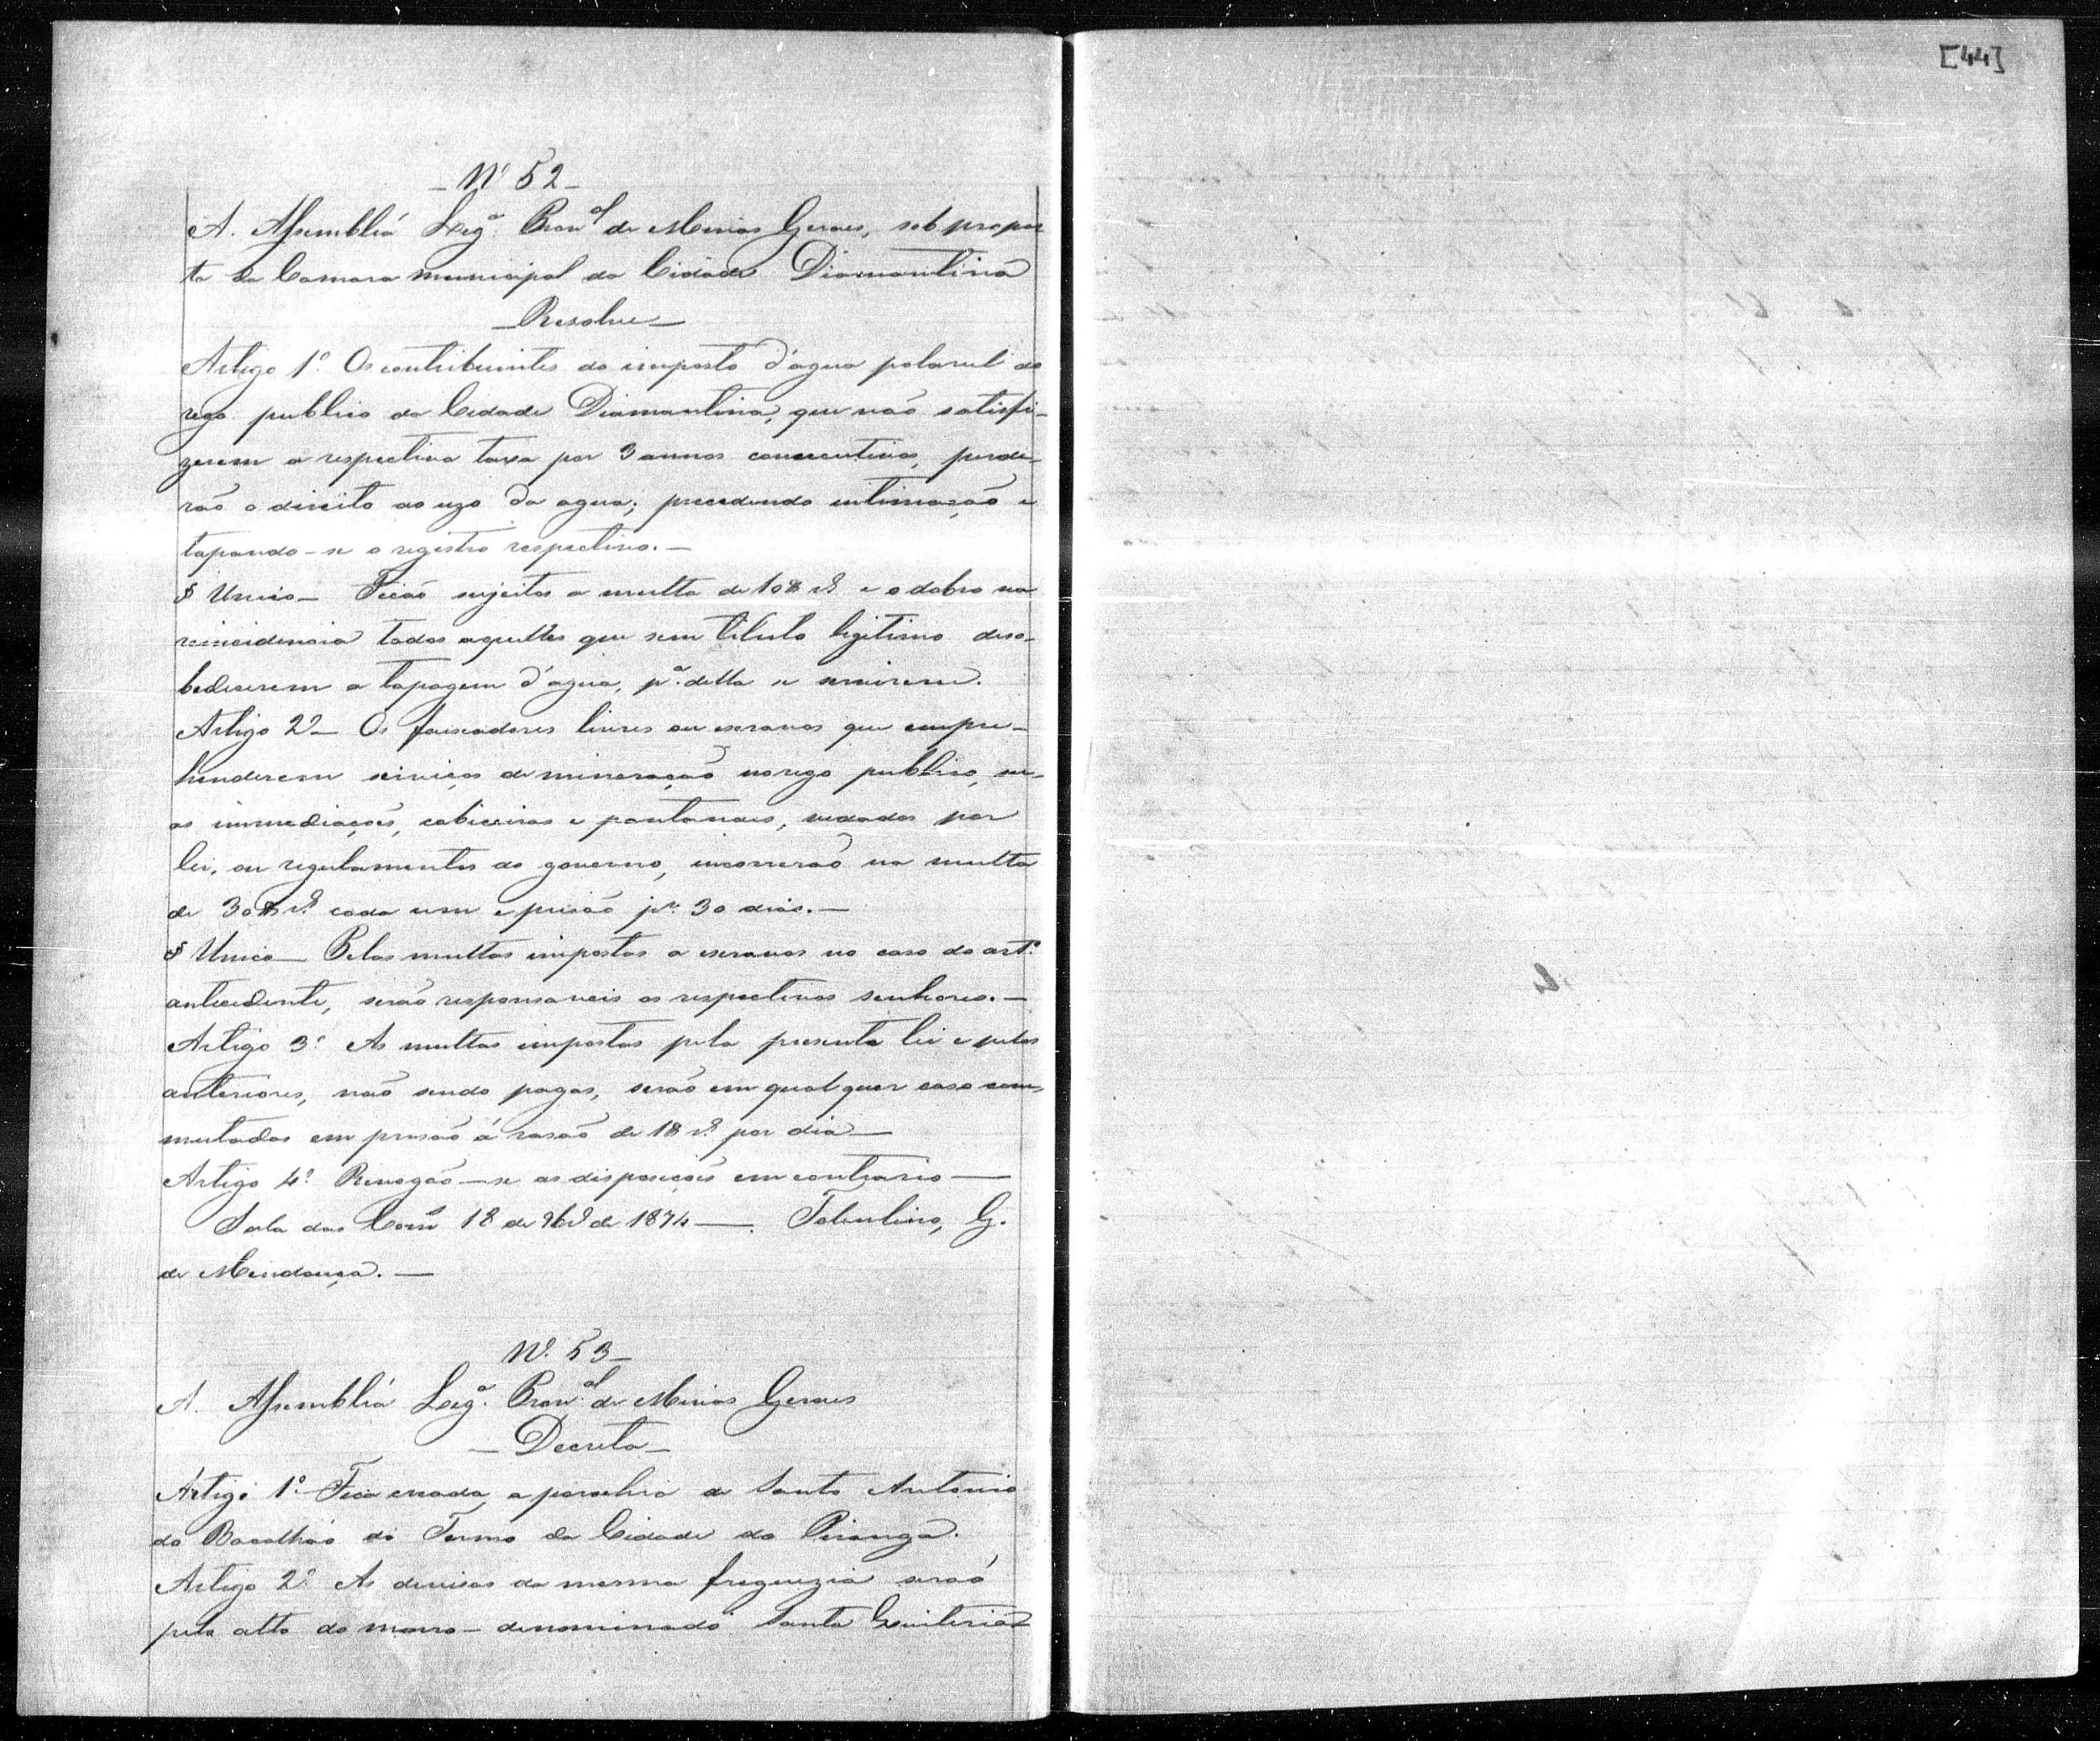 [44]
- Nº 52 -
A Assembléa Legª. Provᵃˡ de Minas Geraes, sob propos
ta da Camara municipal da Cidade Diamantina
- Resolve -
Artigo 1º. Os contribuintes do imposto d'agua potavel do
rego publico da Cidade Diamantina, que não satisfi-
zerem a respectiva taxa por 3 annos consecutivos, perde-
rão o direito ao uzo da agua; precedendo intimação e
tapando-se o registro respectivo. -
§ Unico - Ficão sujeitos a multa de 10$ rs e o dobro na
reincidencia todos aquelles que sem titulo legitimo deso-
bedecerem a tapagem d'agua, pª. della se servirem.
Artigo 2º - Os faiscadores livres ou escravos que empre-
henderem serviços de mineração no rego publico, su-
as immediações, cabiceiras e pantanaes, vedados por
lei, ou regulamentos do governo, incorrerão na multa
de 30$ rs. cada um e prisão pr. 30 dias. -
§ Unico - Pelas multas impostas a escravos no caso do artº.
antecedente, serão responsaveis os respectivos senhores. -
Artigo 3º. As multas impostas pela presente lei e pelas
anteriores, não sendo pagas, serão em qualquer caso com-
mutadas em prisão á rasão de 1$ rs. por dia -
Artigo 4º. Revogão-se as disposições em contrario -
Sala das Comᵐ 18 de 9bʳᵒ de 1874 - . Tolentino, G.
de Mendonça. -
Nº. 53 -
A Assembléa Legª. Provᵃˡ. de Minas Geraes
- Decreta -
Artigo 1º. Fica creada a parochia de Santo Antonio
do Bacalháo do Termo da Cidade do Piranga.
Artigo 2º. As divisas da mesma freguezia serão
pelo alto do morro - denominado Santa Quiteria